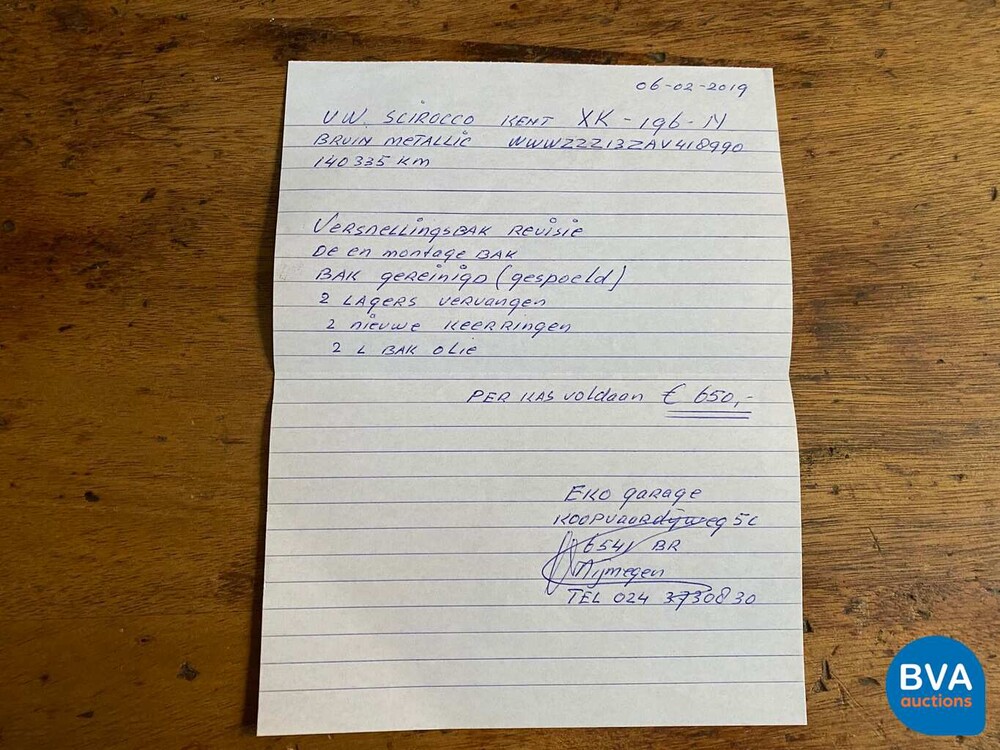 06-02-2019
V.W. SCIROCCO KENT XK-196-N
BRUIN METALLIC WWWZZZ13ZAV418990
140335 KM
VERSNELLINGSBAK REVISIE
DE EN MONTAGE BAK
BAK GEREINIGD (GESPOELD)
2 LAGERS VERVANGEN
2 NIEUWE KEERRINGEN
2 L BAK OLIE
PER KAS VOLDAAN € 650,-
EKO GARAGE
KOOPVAARDIJWEG 5C
6541 BR
NIJMEGEN
TEL 024 3730830
BVA
auctions